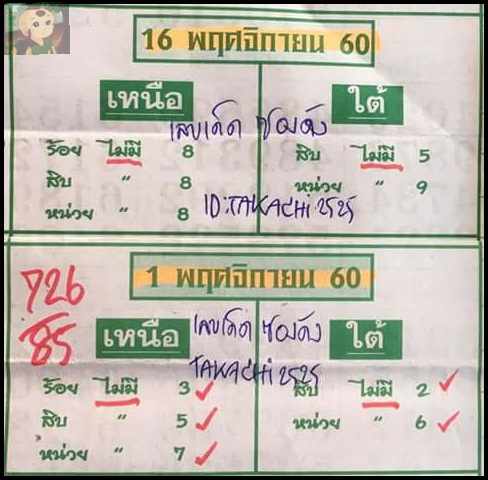 16 พฤศจิกายน 60
เหนือ ใต้
เลขเด็ด ซองดัง
ร้อย ไม่มี 8 สิบ ไม่มี 5
สิบ " 8 หน่วย " 9
หน่วย " 8
ID:TAKACHI2525
1 พฤศจิกายน 60
726
85
เหนือ ใต้
เลขเด็ด ซองดัง
TAKACHI2525
ร้อย ไม่มี 3 สิบ ไม่มี 2
สิบ " 5 หน่วย " 6
หน่วย " 7